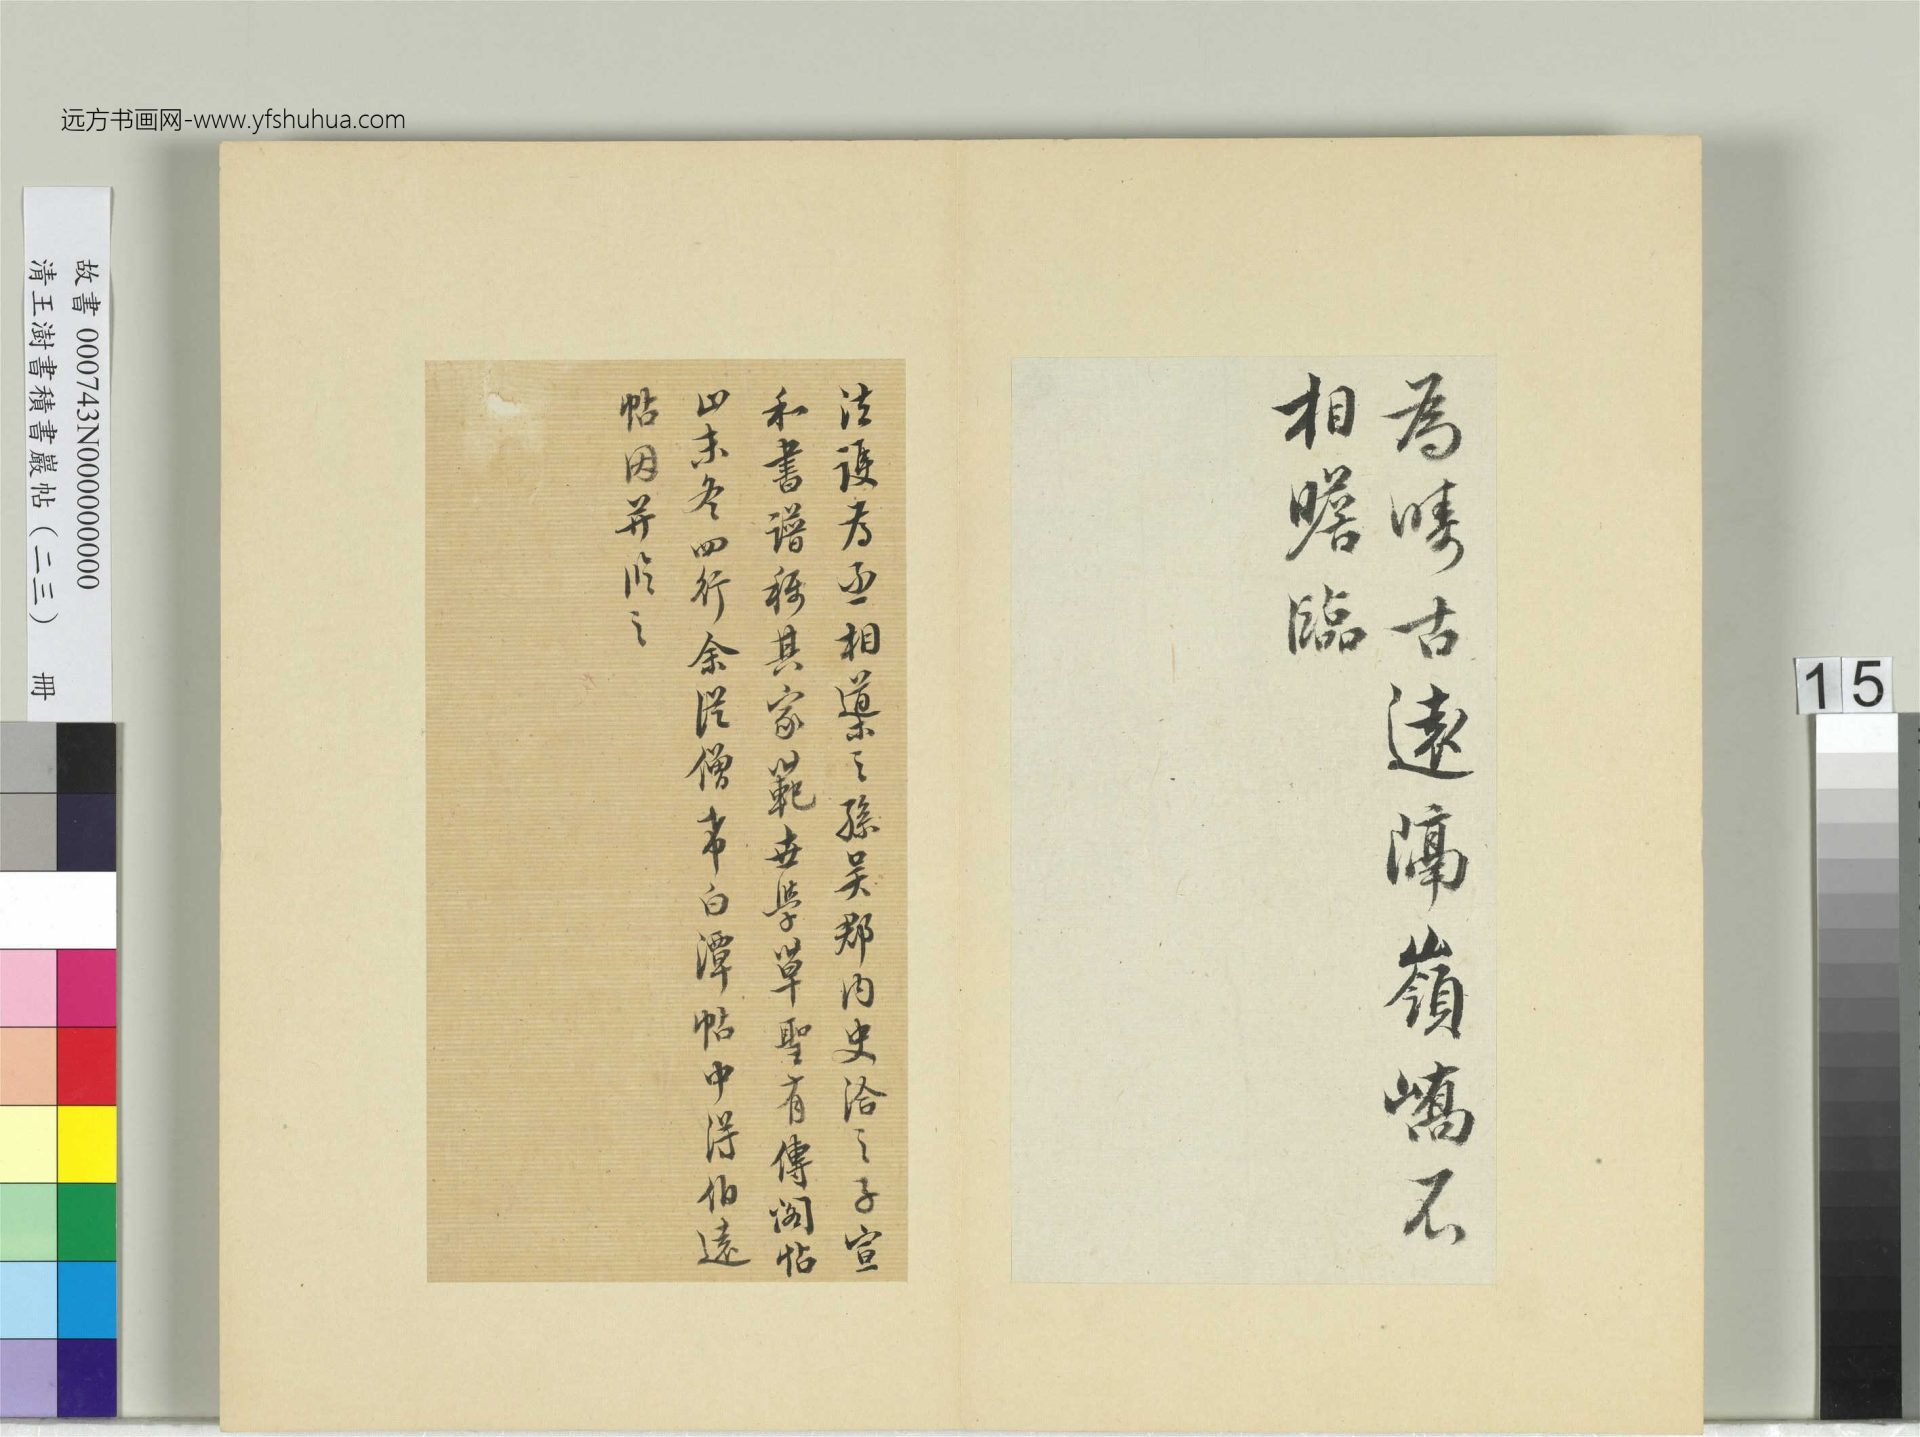 远方书画网-www.yfshuhua.com
為疇古遠隔嶺嶠不
相瞻臨
法護為丞相導之孫吳郡內史洽之子宣
和書譜稱其家範世學草聖有傳閣帖
止末冬四行余從僧希白潭帖中得伯遠
帖因并臨之
故書 000743N000000000
清王澍書積書巖帖(二三) 冊
15